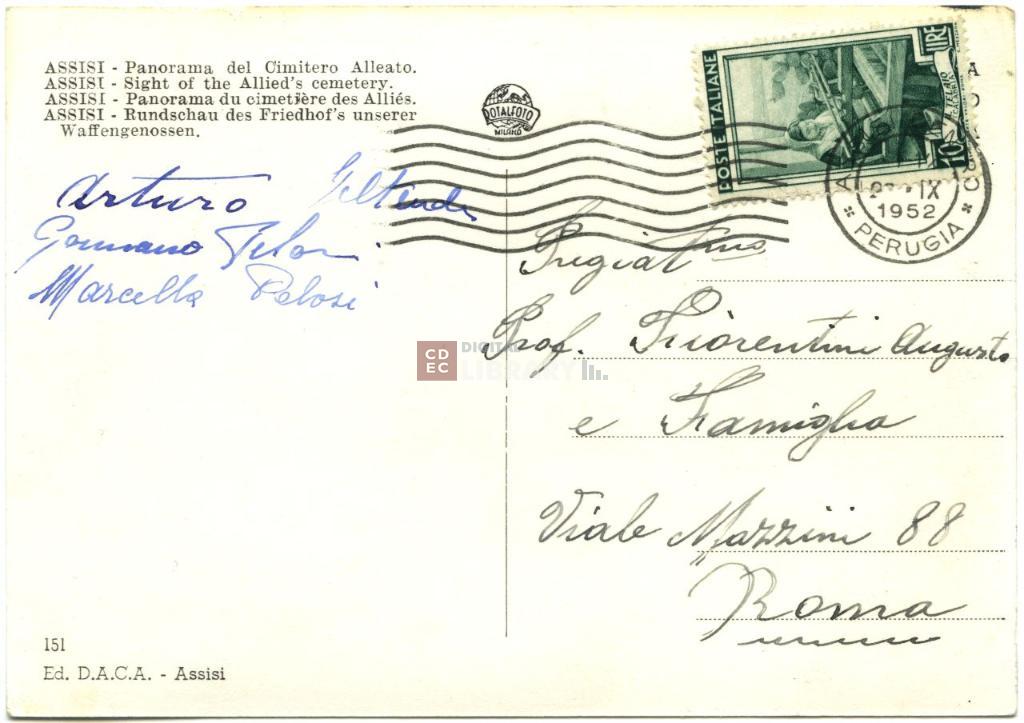 ASSISI - Panorama del Cimitero Alleato.
ASSISI - Sight of the Allied's cemetery.
ASSISI - Panorama du cimetière des Alliés.
ASSISI - Rundschau des Friedhof's unserer
Waffengenossen.
ROTALFOTO
MILANO
POSTE ITALIANE
10 LIRE
IX
1952
* PERUGIA *
Arturo
Marcella Pelosi
Pregiat mo
Prof. Fiorentini Augusto
e Famiglia
Viale Mazzini 88
Roma
CDEC DIGITAL LIBRARY
151
Ed. D.A.C.A. - Assisi